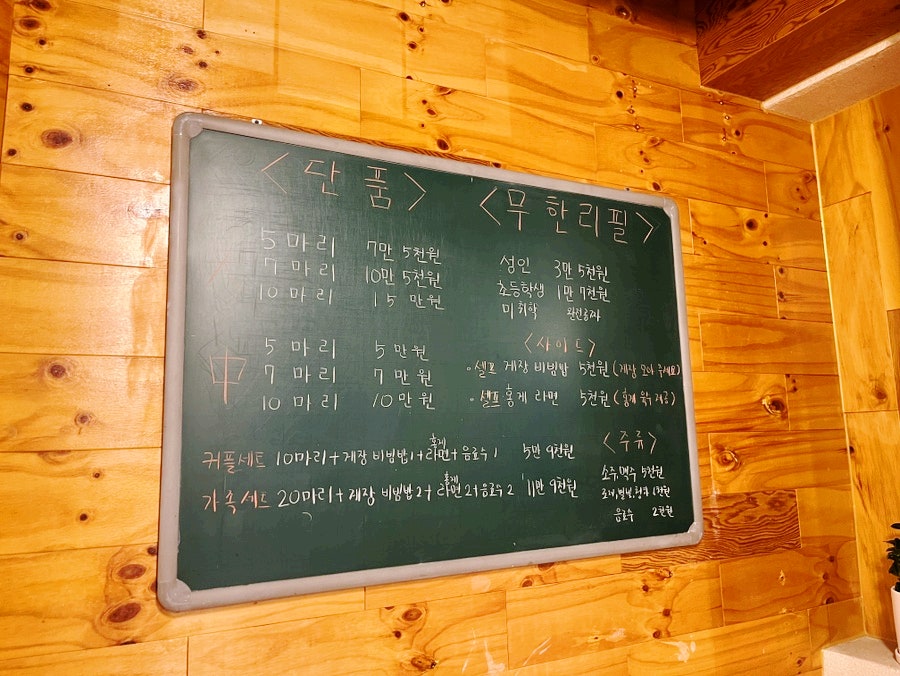 <단품>
5마리 7만 5천원
7마리 10만 5천원
10마리 15만원
中
5마리 5만원
7마리 7만원
10마리 10만원
커플세트 10마리+게장 비빔밥1+홍게라면+음료수1 5만 9천원
가족세트 20마리+게장 비빔밥2+홍게라면2+음료수2 11만 9천원
<무한리필>
성인 3만 5천원
초등학생 1만 7천원
미취학
<사이드>
•셀프 게장 비빔밥 5천원 (게장
•셀프 홍게 라면 5천원 (홍게 육수 제공)
<주류>
소주,맥주 5천원
음료수 2천원